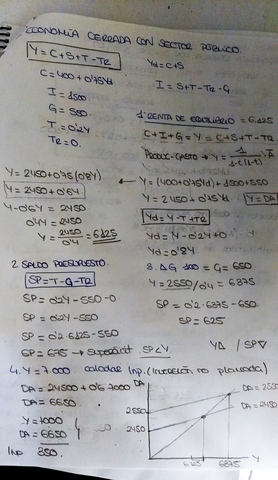 ECONOMÍA CERRADA CON SECTOR PÚBLICO.
Y = C+S+T-TR
Yd = C+S
C = 400+0'75Yd
I = 1500
I = S+T-TR-G
G = 550
T = 0'2Y
TR = 0.
1. RENTA DE EQUILIBRIO = 6.125
C+I+G = Y = C+S+T-TR
Y = 2450+0'75(0'8Y)
Y = 2450+0'6Y
Y-0'6Y = 2450
0'4Y = 2450
Y = 2450/0'4 = 6125
Y = (400+0'75Yd)+1500+550
Y = 2450+0'75Yd
Y = DA
Yd = Y-T+TR
Yd = Y-0'2Y+0
Yd = 0'8Y
2. SALDO PRESUPUESTO.
SP = T-G-TR
SP = 0'2Y-550-0
SP = 0'2Y-550
SP = 0'2·6125-550
SP = 675 → Superávit
SP<Y
3. ΔG 100 = G = 650
Y = 2550/0'4 = 6375
SP = 0'2·6375-650
SP = 625
YΔ / SP∇
4. Y = 7.000 calcular Inp. (inversión no planeada)
DA = 24500+0'6·7000
DA = 6650
Y = 7000
DA = 6650
Inp 350.
DA
DA = 2550
DA = 2450
2550
2450
6125
6375
Y